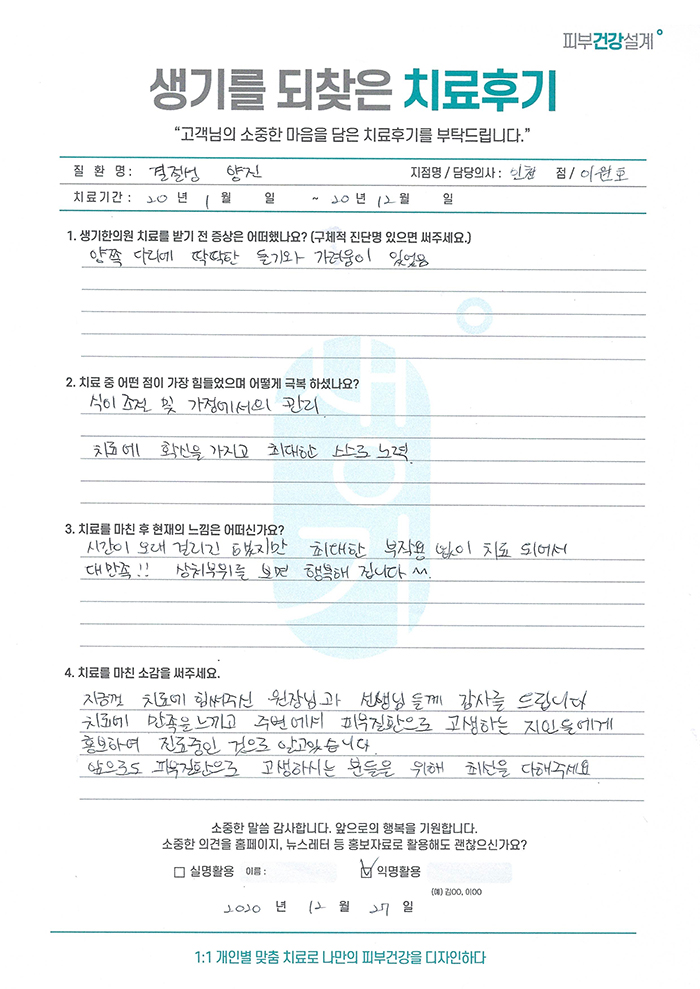 피부건강설계
생기를 되찾은 치료후기
“고객님의 소중한 마음을 담은 치료후기를 부탁드립니다.”
질 환 명 : 결절성 양진 지점명 / 담당의사 : 인천 점 / 이원호
치료기간 : 20 년 1 월 일 ~ 20 년 12 월 일
1. 생기한의원 치료를 받기 전 증상은 어떠했나요? (구체적 진단명 있으면 써주세요.)
양쪽 다리에 딱딱한 돌기와 가려움이 있었음
2. 치료 중 어떤 점이 가장 힘들었으며 어떻게 극복 하셨나요?
식이조절 및 가정에서의 관리
치료에 확신을 가지고 최대한 스스로 노력
3. 치료를 마친 후 현재의 느낌은 어떠신가요?
시간이 오래 걸리긴 했지만 최대한 부작용 없이 치료 되어서
대만족!! 상처부위를 보면 행복해 집니다 ^^.
4. 치료를 마친 소감을 써주세요.
지금껏 치료에 힘써주신 원장님과 선생님들께 감사를 드립니다
치료에 만족을 느끼고 주변에서 피부질환으로 고생하는 지인들에게
홍보하여 진료중인 것으로 알고있습니다.
앞으로도 피부질환으로 고생하시는 분들을 위해 최선을 다해주세요
소중한 말씀 감사합니다. 앞으로의 행복을 기원합니다.
소중한 의견을 홈페이지, 뉴스레터 등 홍보자료로 활용해도 괜찮으신가요?
실명활용 이름 : 익명활용
(예) 김OO, 이OO
2020 년 12 월 27 일
1:1 개인별 맞춤 치료로 나만의 피부건강을 디자인하다
생기